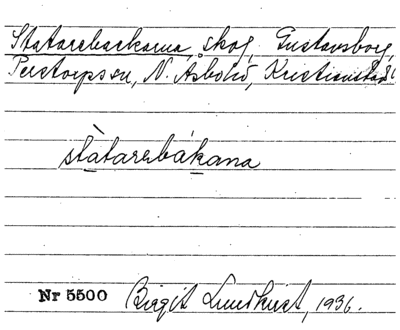 Statarebackarna, skog, Gustavsborg,
Perstorps sn, N. Åsbo hd, Kristianstads l
stàtarebákana
Nr 5500 Birgit Lundkvist, 1936.